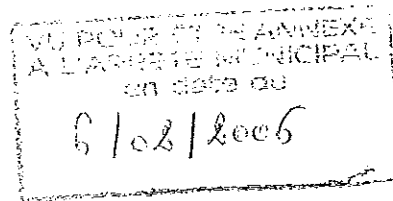 VU POUR ETRE ANNEXE
A L'ARRETE MUNICIPAL
en date du
6/02/2006